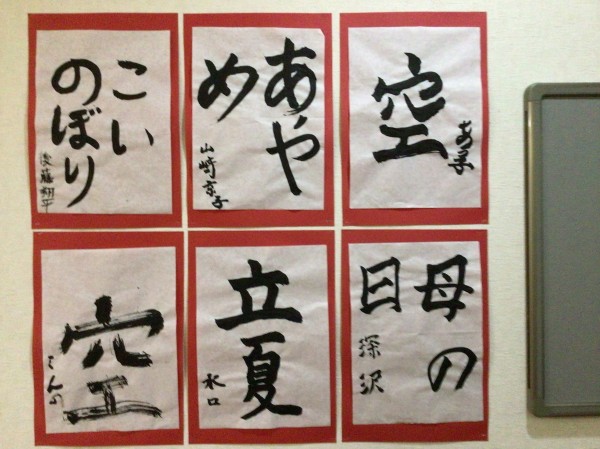 こい
のぼり
後藤翔平
あや
め
山崎京子
空
立夏
水口
母の
日
深沢
空
こんの